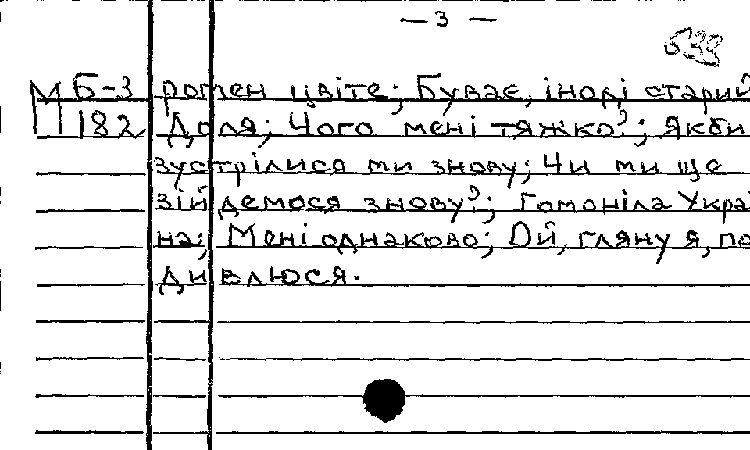 — 3 —
533
М Б-3 ромен цвіте; Буває, іноді старий
Ц 182 Доля; Чого мені тяжко?; Якби
зустрілися ми знову; Чи ми ще
зійдемося знову?; Гомоніла Укра
на; Мені однаково; Ой, гляну я, по
дивлюся.